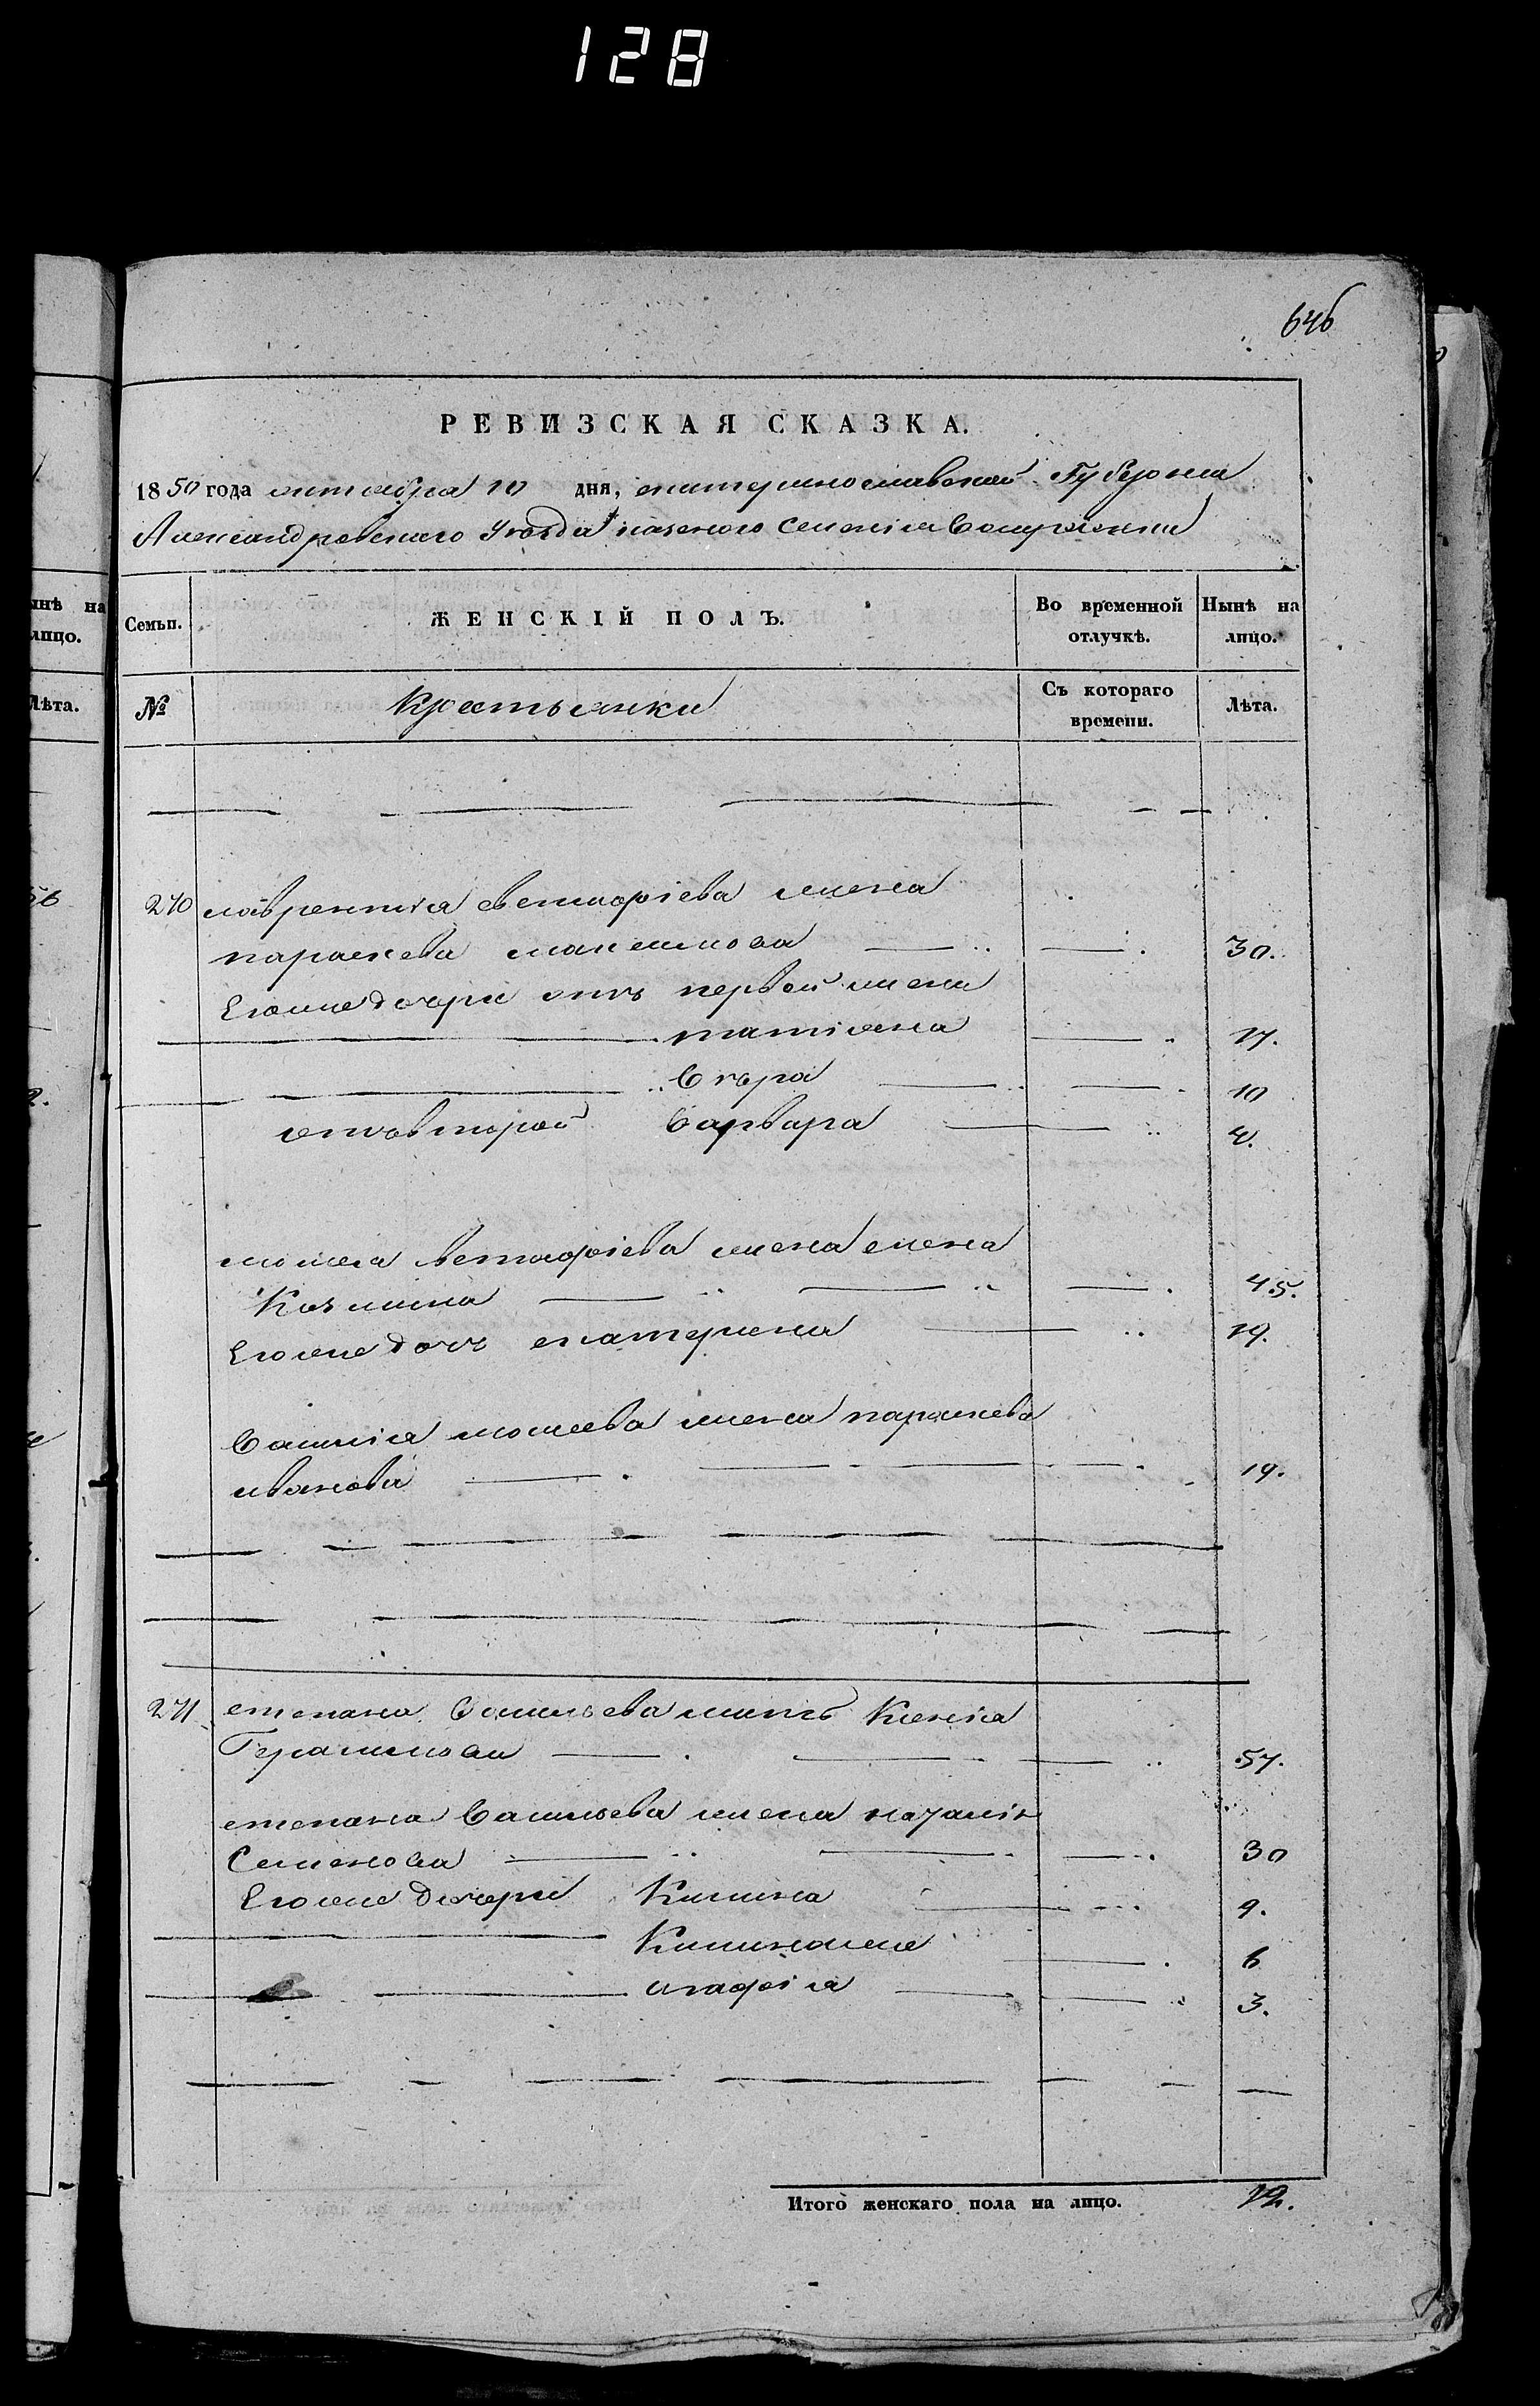 128
646
РЕВИЗСКАЯ СКАЗКА.
1850 года октября 10 дня, екатеринославской Губернии
Александровского Уѣзда казеного селенія
Семьи.
ЖЕНСКІЙ ПОЛЪ.
Во временной отлучкѣ.
Нынѣ на лицо.
№
Крестьянки
Съ котораго времени.
Лѣта.
270 лаврентія евстафіева жена
параскева максимова 30.
Егоже дочери отъ первой жены
татіана 17.
Вѣра 10
отъ второй Варвара 4.
евстафіева жена елена
Козмина 45.
Егоже дочъ екатерина 19.
жена параскева
иванова 19.
271 степана Васильева мать Ксенія
Герасимова 57.
степана Васильева жена наталія
Семенова 30
Егоже дочери 9.
6
агафія 3.
Итого женскаго пола на лицо. 12.
ынѣ на
лицо.
Лѣта.
56
2.